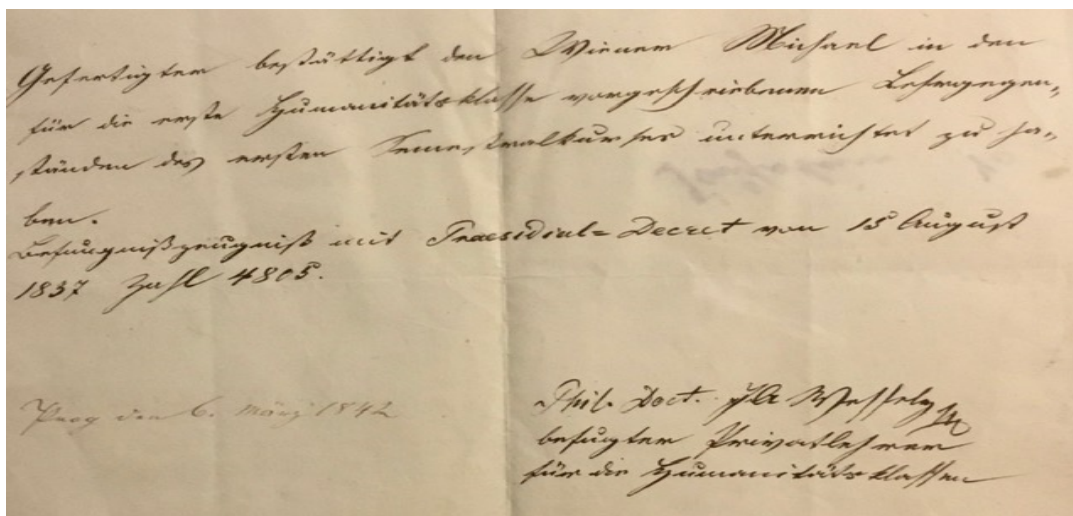 Gefertigter bestättigt den Wiener Michael in den
für die erste Humanitätsklasse vorgeschriebenen Lehrgegen=
ständen des ersten Semestralkurses unterrichtet zu ha=
ben.
Befugnißzeugniß mit Praesidial= Decret vom 15 August
1837 Zahl 4805.
Prag den 6. März 1842
Phil. Doct. Wessely
befugter Privatlehrer
für die Humanitätsklassen